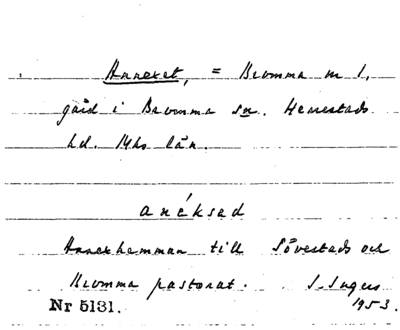 Annexet, = Bromma nr 1,
gård i Bromma sn. Herrestads
hd. Mhs län.
anéksad
Annexhemman till Sövestads och
Bromma pastorat. S. Ingers
Nr 5131. 1953.